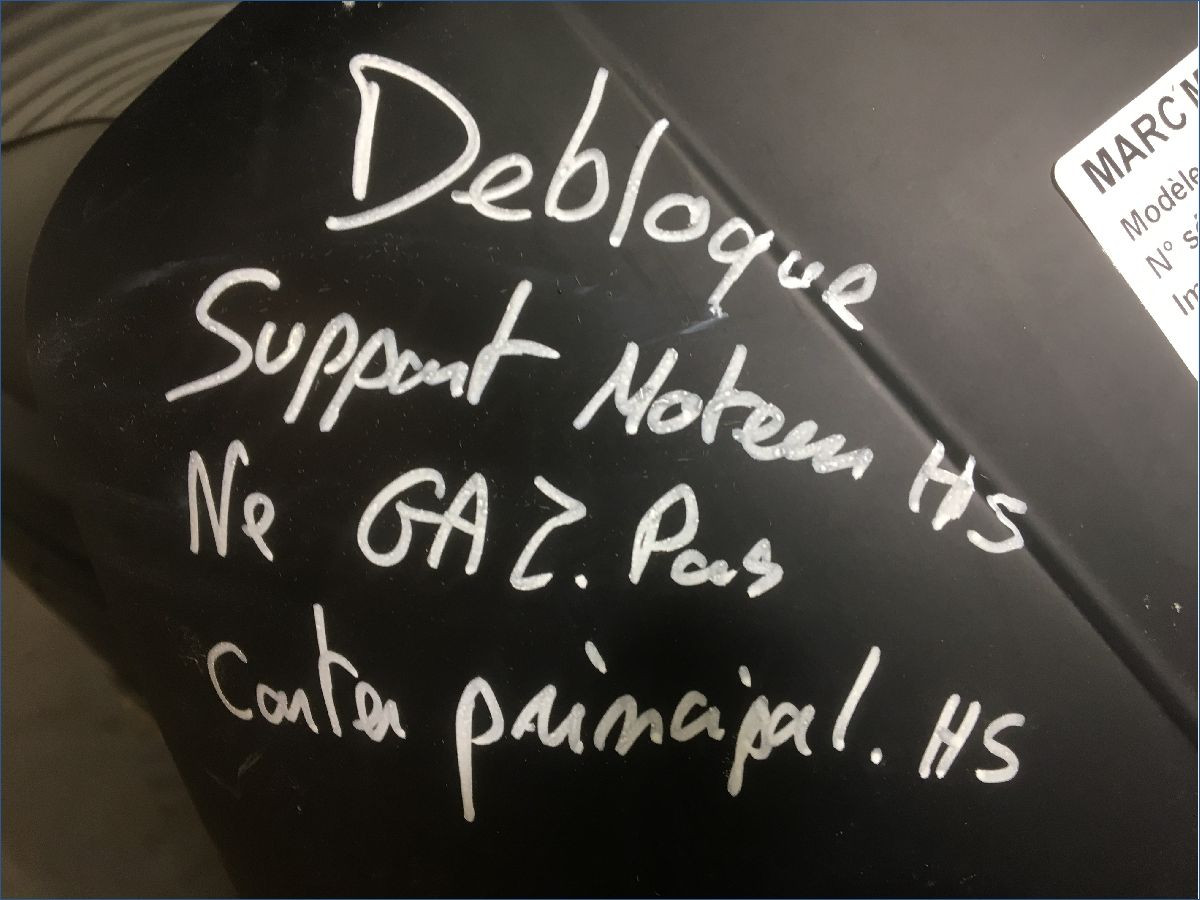 Debloque
Support Moteur HS
Ne GAZ. Pas
Carter principal. HS
MARC
Modèle
N°